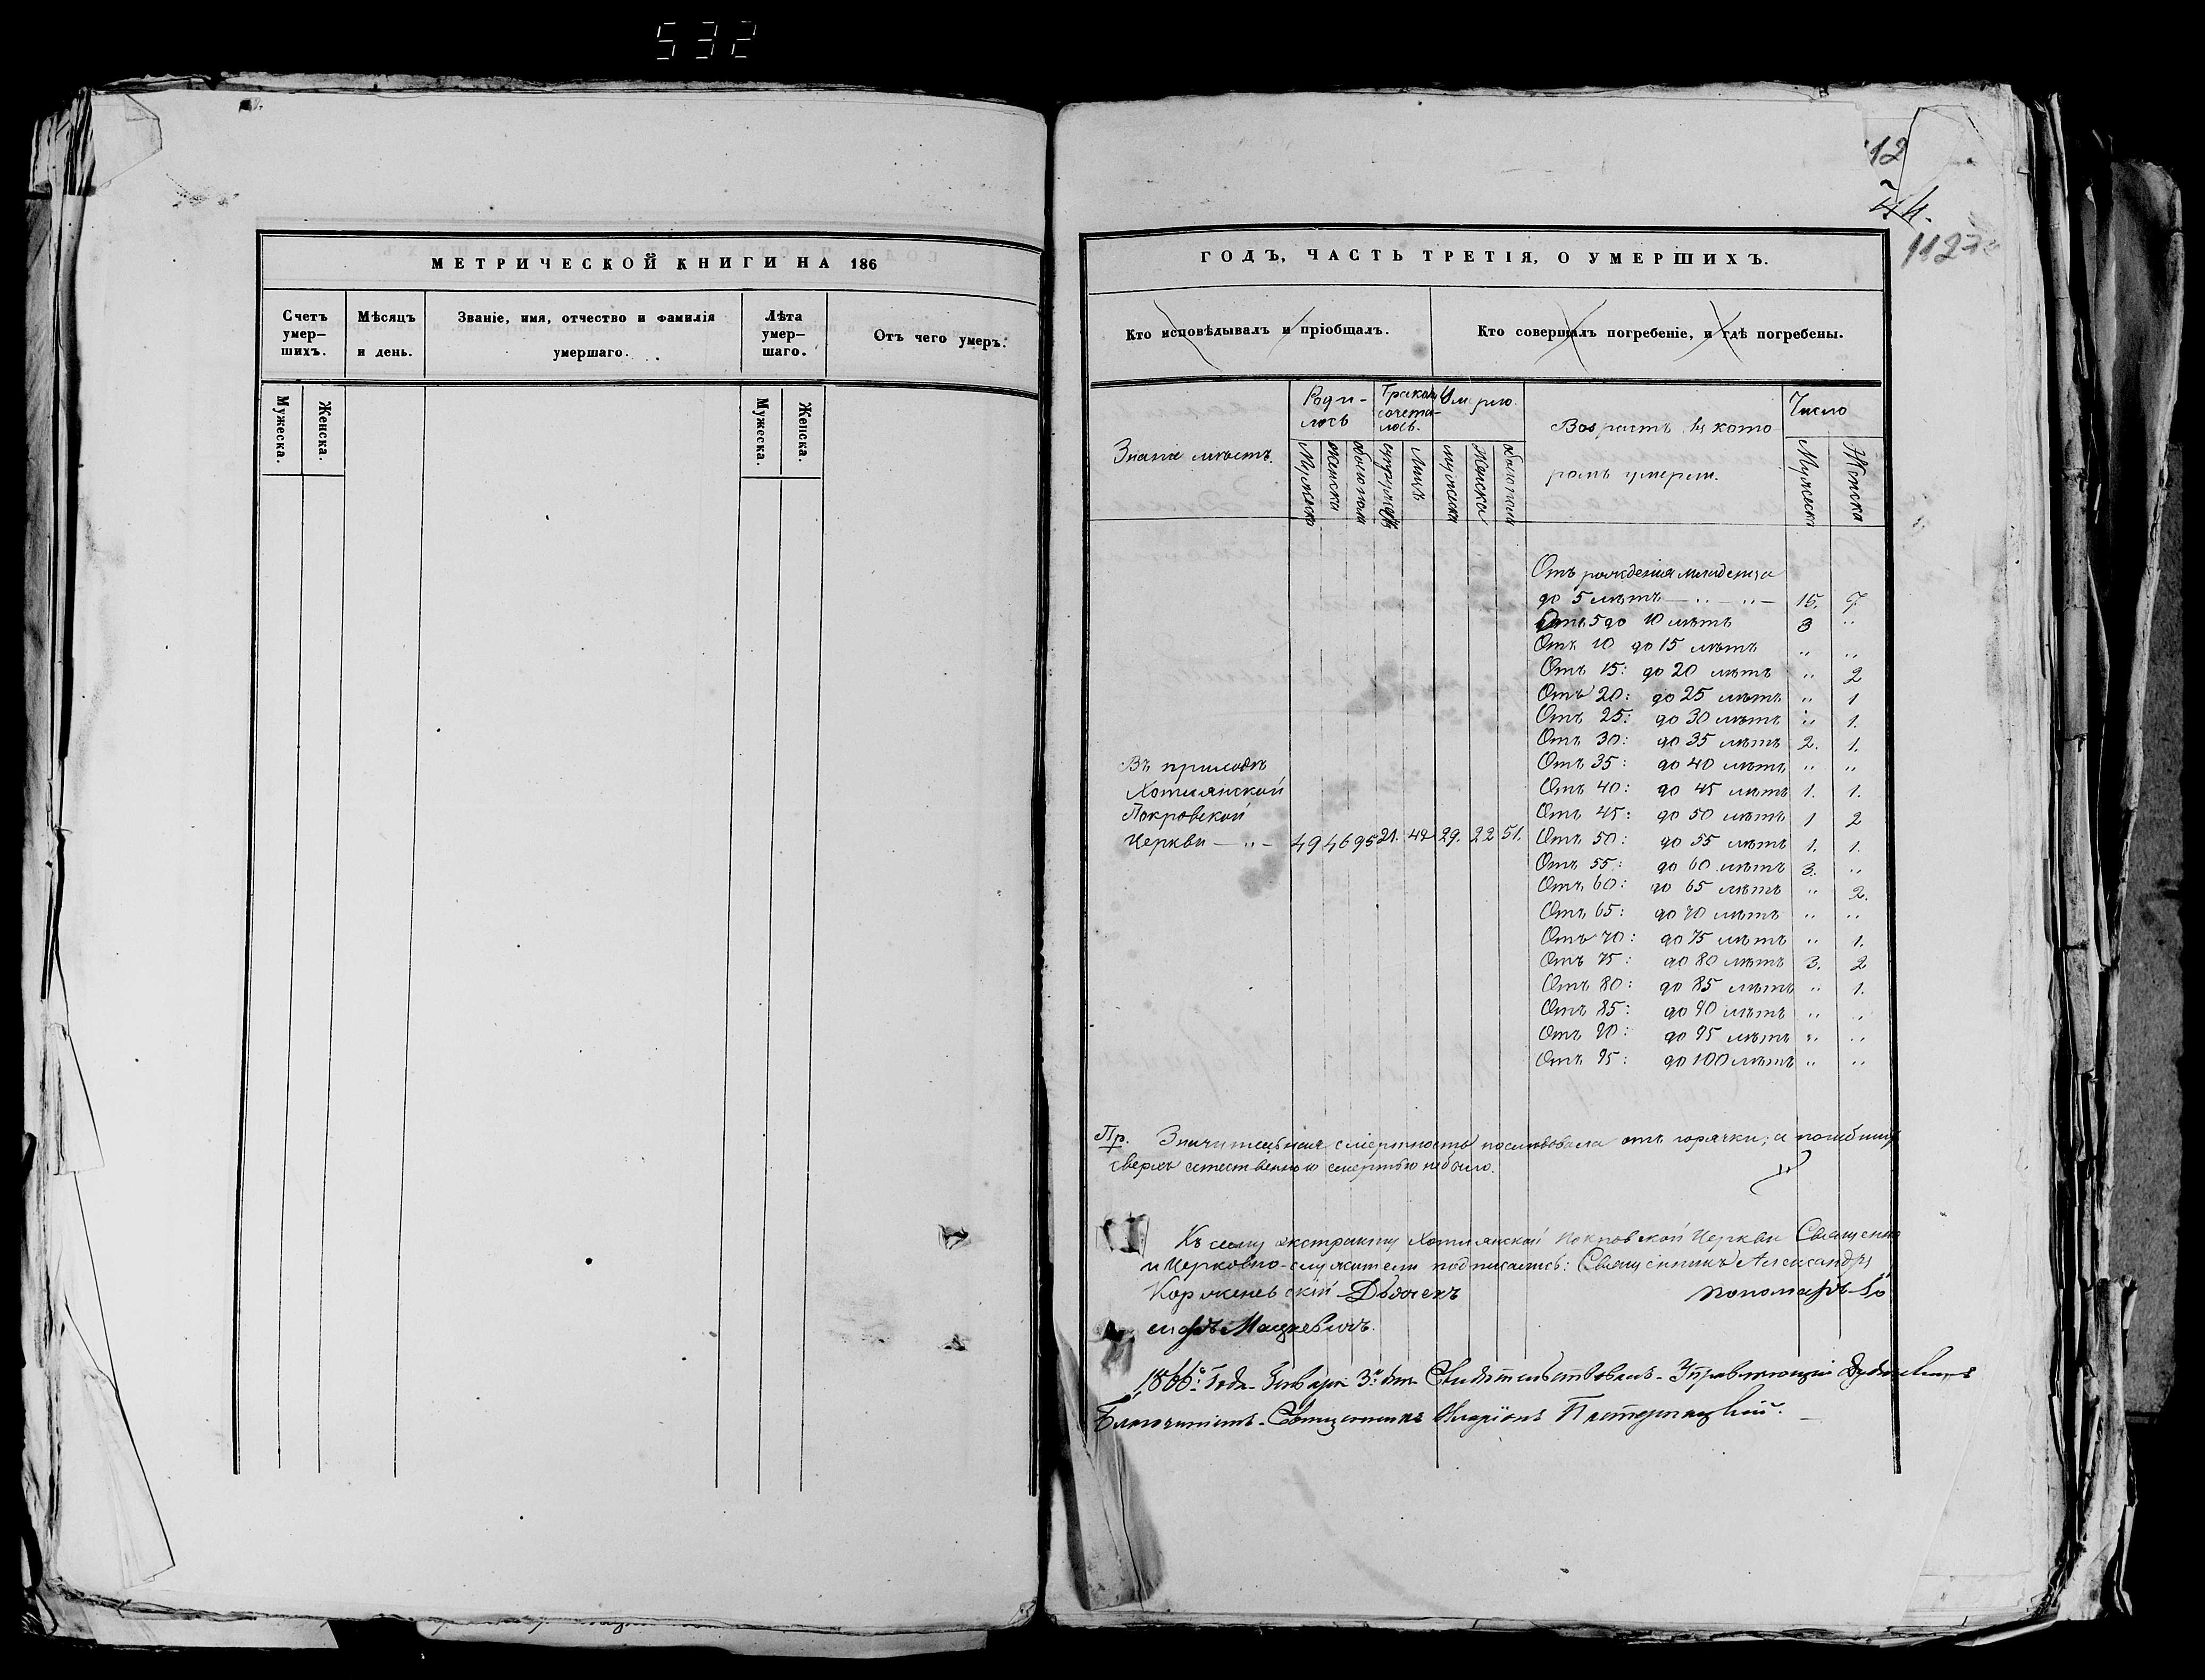 532
12
1127
МЕТРИЧЕСКОЙ КНИГИ НА 186
Счетъ умер-
шихъ.
Мѣсяцъ
и день.
Званіе, имя, отчество и фамилія
умершаго.
Лѣта
умер-
шаго.
Отъ чего умеръ.
Мужеска.
Женска.
Мужеска.
Женска.
ГОДЪ, ЧАСТЬ ТРЕТІЯ, О УМЕРШИХЪ.
Кто исповѣдывалъ и пріобщалъ.
Кто совершалъ погребеніе, и гдѣ погребены.
Званіе мѣстъ.
Роди-
лось
Мужеска
женска
обоего пола
Бракомъ
сочета-
лось.
супружествъ
Лицъ
Умерло.
мужеска
Женска
обоего пола
Возрастъ въ кото
ромъ умерли.
Число
Мужеска
Женска
Отъ рожденія младенца
до 5 лѣтъ — „ — „ — 15. 7.
Отъ 5 до 10 лѣтъ 3 „
Отъ 10 до 15 лѣтъ „ „
Отъ 15: до 20 лѣтъ „ 2
Отъ 20: до 25 лѣтъ „ 1
Отъ 25: до 30 лѣтъ „ 1.
Отъ 30: до 35 лѣтъ 2. 1.
Отъ 35: до 40 лѣтъ „ „
Отъ 40: до 45 лѣтъ 1. 1.
Отъ 45: до 50 лѣтъ 1 2
Отъ 50: до 55 лѣтъ 1. 1.
Отъ 55: до 60 лѣтъ 3. „
Отъ 60: до 65 лѣтъ „ 2.
Отъ 65: до 70 лѣтъ „ „
Отъ 70: до 75 лѣтъ „ 1.
Отъ 75: до 80 лѣтъ 3. 2
Отъ 80: до 85 лѣтъ „ 1.
Отъ 85: до 90 лѣтъ „ „
Отъ 90: до 95 лѣтъ „ „
Отъ 95: до 100 лѣтъ „ „
Въ приходѣ
Хотлянской
Покровской
Церкви — „ — 49 46 95 21. 42 29. 22 51.
Пр. Значительная смертность послѣдовала отъ горячки; а погибшихъ
сверхъ естественною смертью небыло.
Къ сему экстракту Хотлянской Покровской Церкви Священно
и Церковно-служители подписались: Священникъ Александръ
Корженевскій Дьячекъ пономарь Іо
сифъ Мацкевичъ.
1866º: Года Января 3º: дня Свидѣтельствовалъ Управляющій
Благочиніемъ Священникъ Иларіонъ